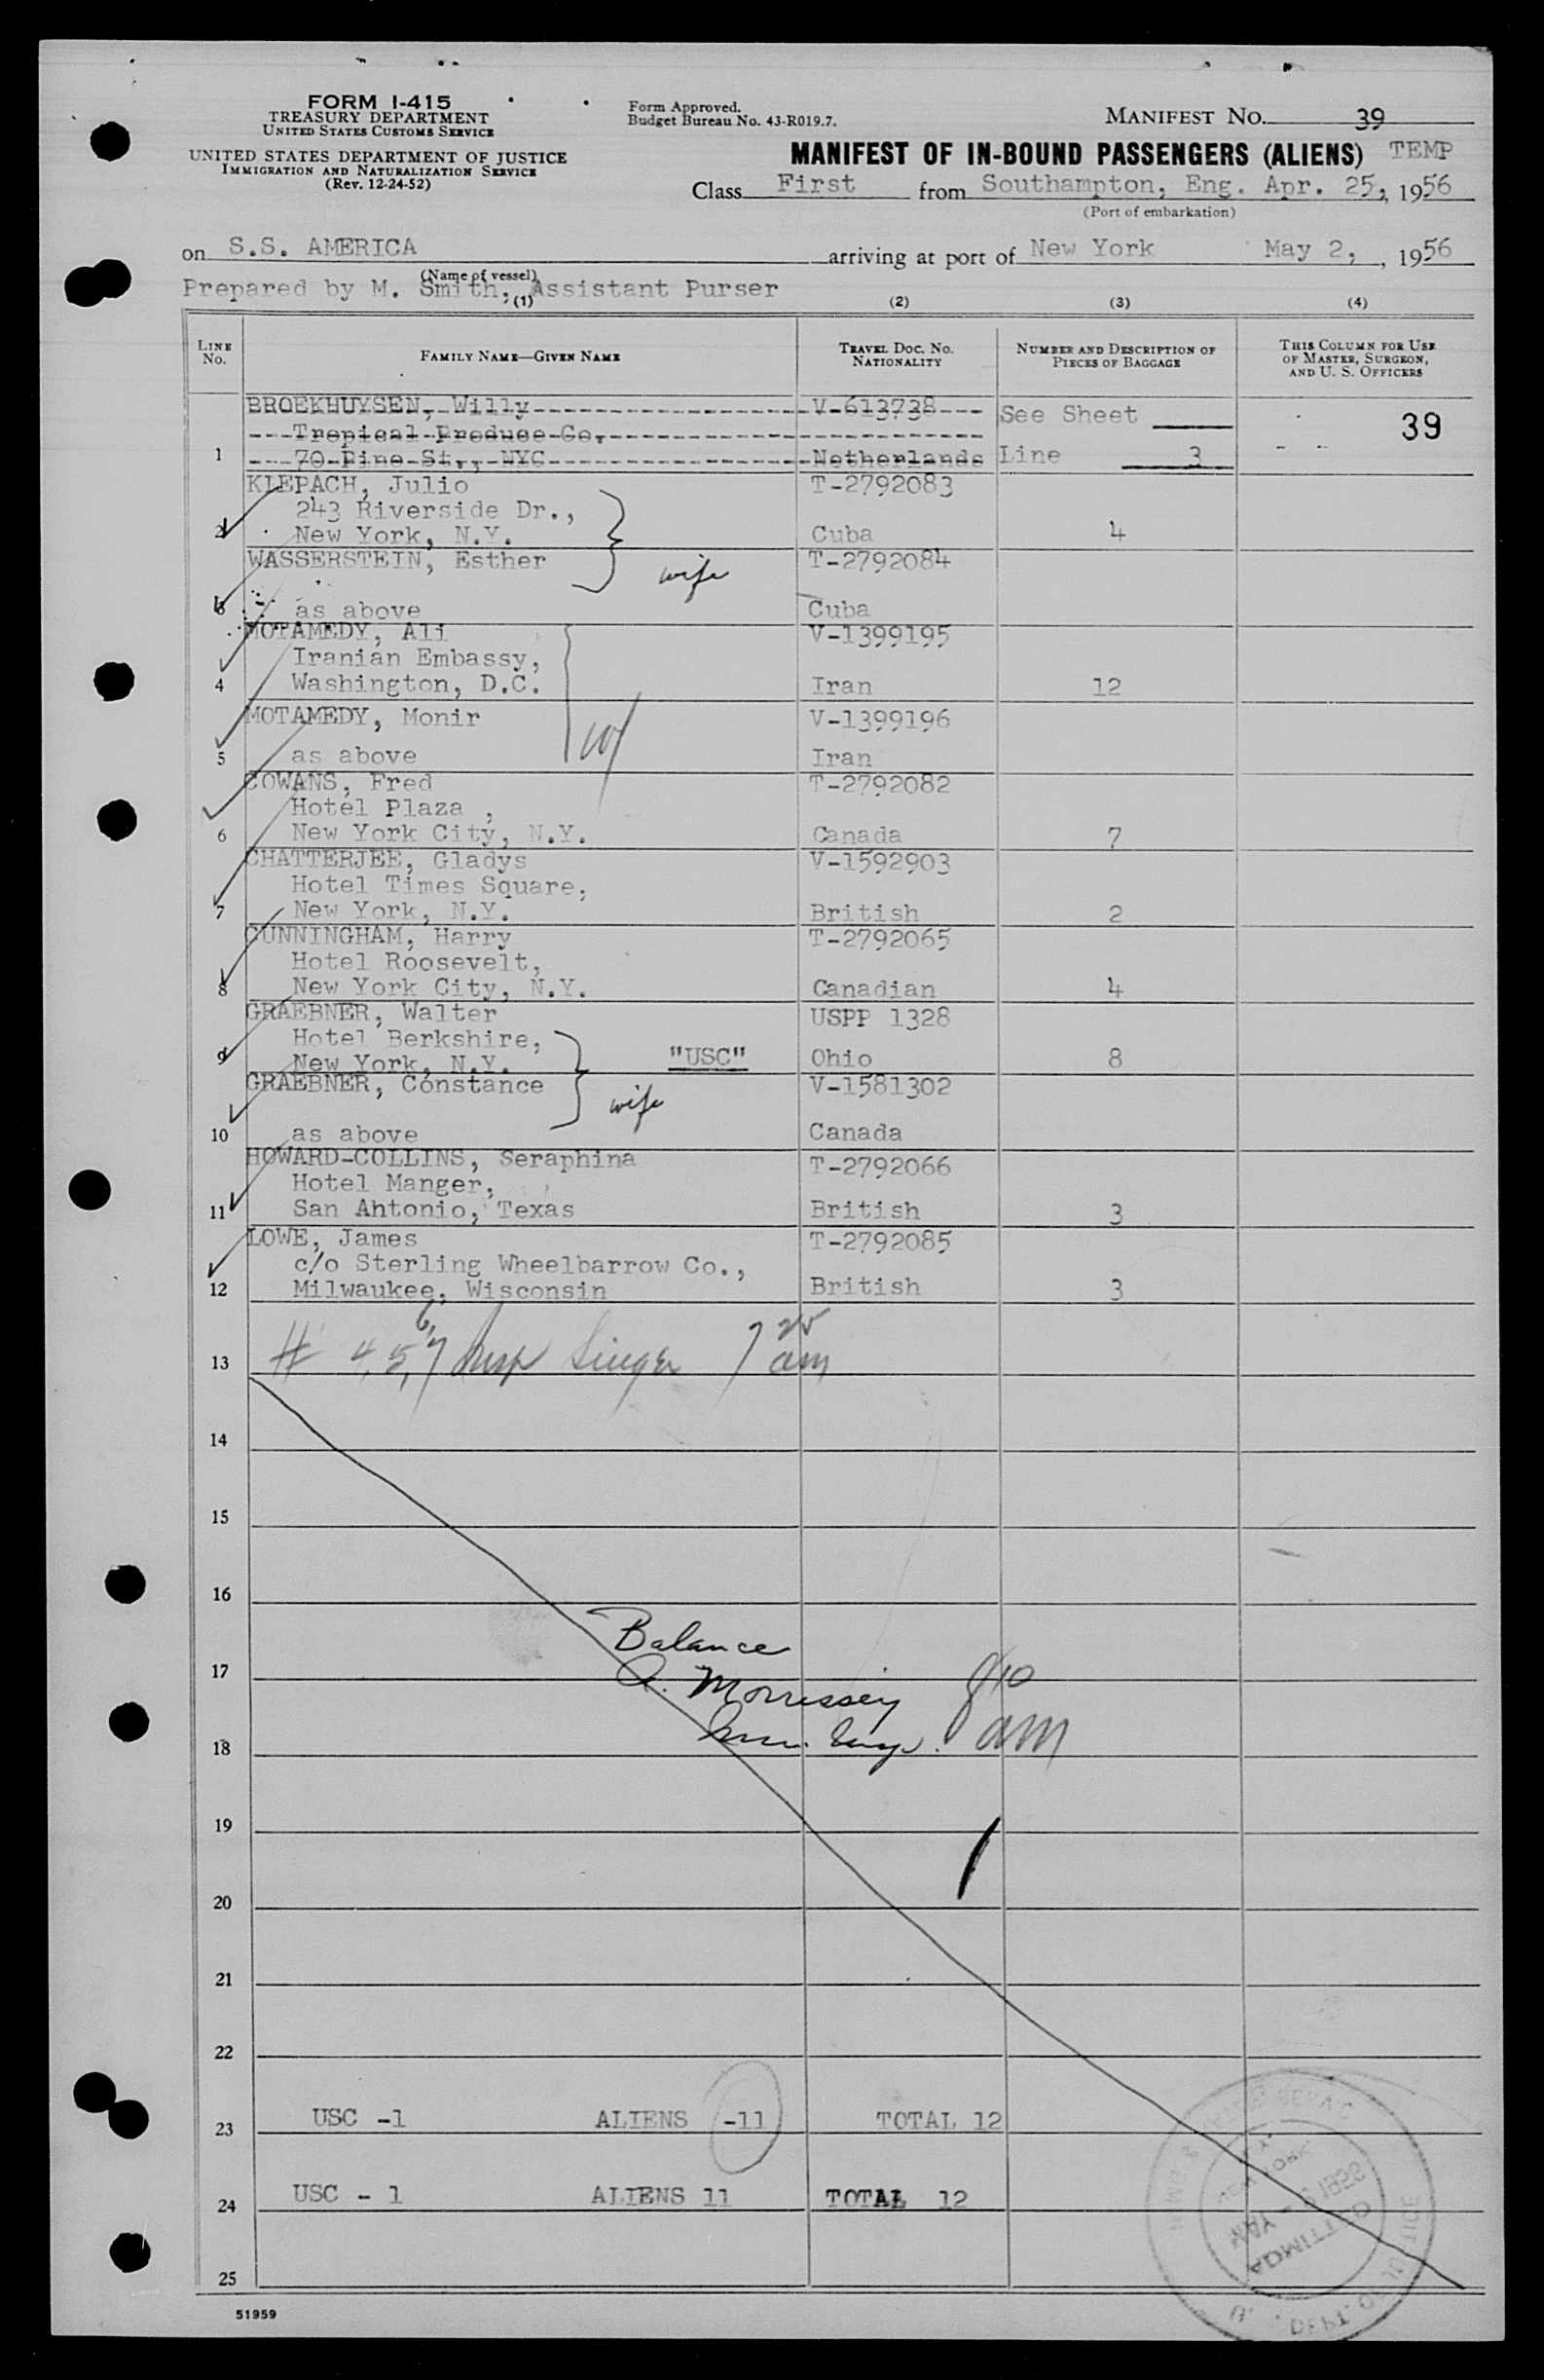 FORM I-415
TREASURY DEPARTMENT
UNITED STATES CUSTOMS SERVICE
UNITED STATES DEPARTMENT OF JUSTICE
IMMIGRATION AND NATURALIZATION SERVICE
(Rev. 12-24-52)
Form Approved.
Budget Bureau No. 43-R019.7.
MANIFEST NO. 39
MANIFEST OF IN-BOUND PASSENGERS (ALIENS) TEMP
Class First from Southampton, Eng. Apr. 25, 1956
(Port of embarkation)
on S.S. AMERICA arriving at port of New York May 2, , 1956
(Name of vessel)
Prepared by M. Smith, Assistant Purser
(1) (2) (3) (4)
LINE NO. FAMILY NAME—GIVEN NAME TRAVEL DOC. NO. NATIONALITY NUMBER AND DESCRIPTION OF PIECES OF BAGGAGE THIS COLUMN FOR USE OF MASTER, SURGEON, AND U. S. OFFICERS
BROEKHUYSEN, Willy V-613738 See Sheet 39
Tropical Produce Co.
1 70 Pine St., NYC Netherlands Line 3
KLEPACH, Julio T-2792083
243 Riverside Dr.,
2 New York, N.Y. Cuba 4
WASSERSTEIN, Esther wife T-2792084
3 as above Cuba
MOTAMEDY, Ali V-1399195
Iranian Embassy,
4 Washington, D.C. Iran 12
MOTAMEDY, Monir V-1399196
5 as above Iran
COWANS, Fred T-2792082
Hotel Plaza ,
6 New York City, N.Y. Canada 7
CHATTERJEE, Gladys V-1592903
Hotel Times Square,
7 New York, N.Y. British 2
CUNNINGHAM, Harry T-2792065
Hotel Roosevelt,
8 New York City, N.Y. Canadian 4
GRAEBNER, Walter USPP 1328
Hotel Berkshire,
9 New York, N.Y. "USC" Ohio 8
GRAEBNER, Constance wife V-1581302
10 as above Canada
HOWARD-COLLINS, Seraphina T-2792066
Hotel Manger,
11 San Ahtonio, Texas British 3
LOWE, James T-2792085
c/o Sterling Wheelbarrow Co.,
12 Milwaukee, Wisconsin British 3
13 # 4, 5, 6, 7 Insp Singer 7 25 am
14
15
16
Balance
17 Morrissey 8 10
18 am
19
20
21
22
23 USC -1 ALIENS -11 TOTAL 12
24 USC - 1 ALIENS 11 TOTAL 12
25
ADMITTED
51959